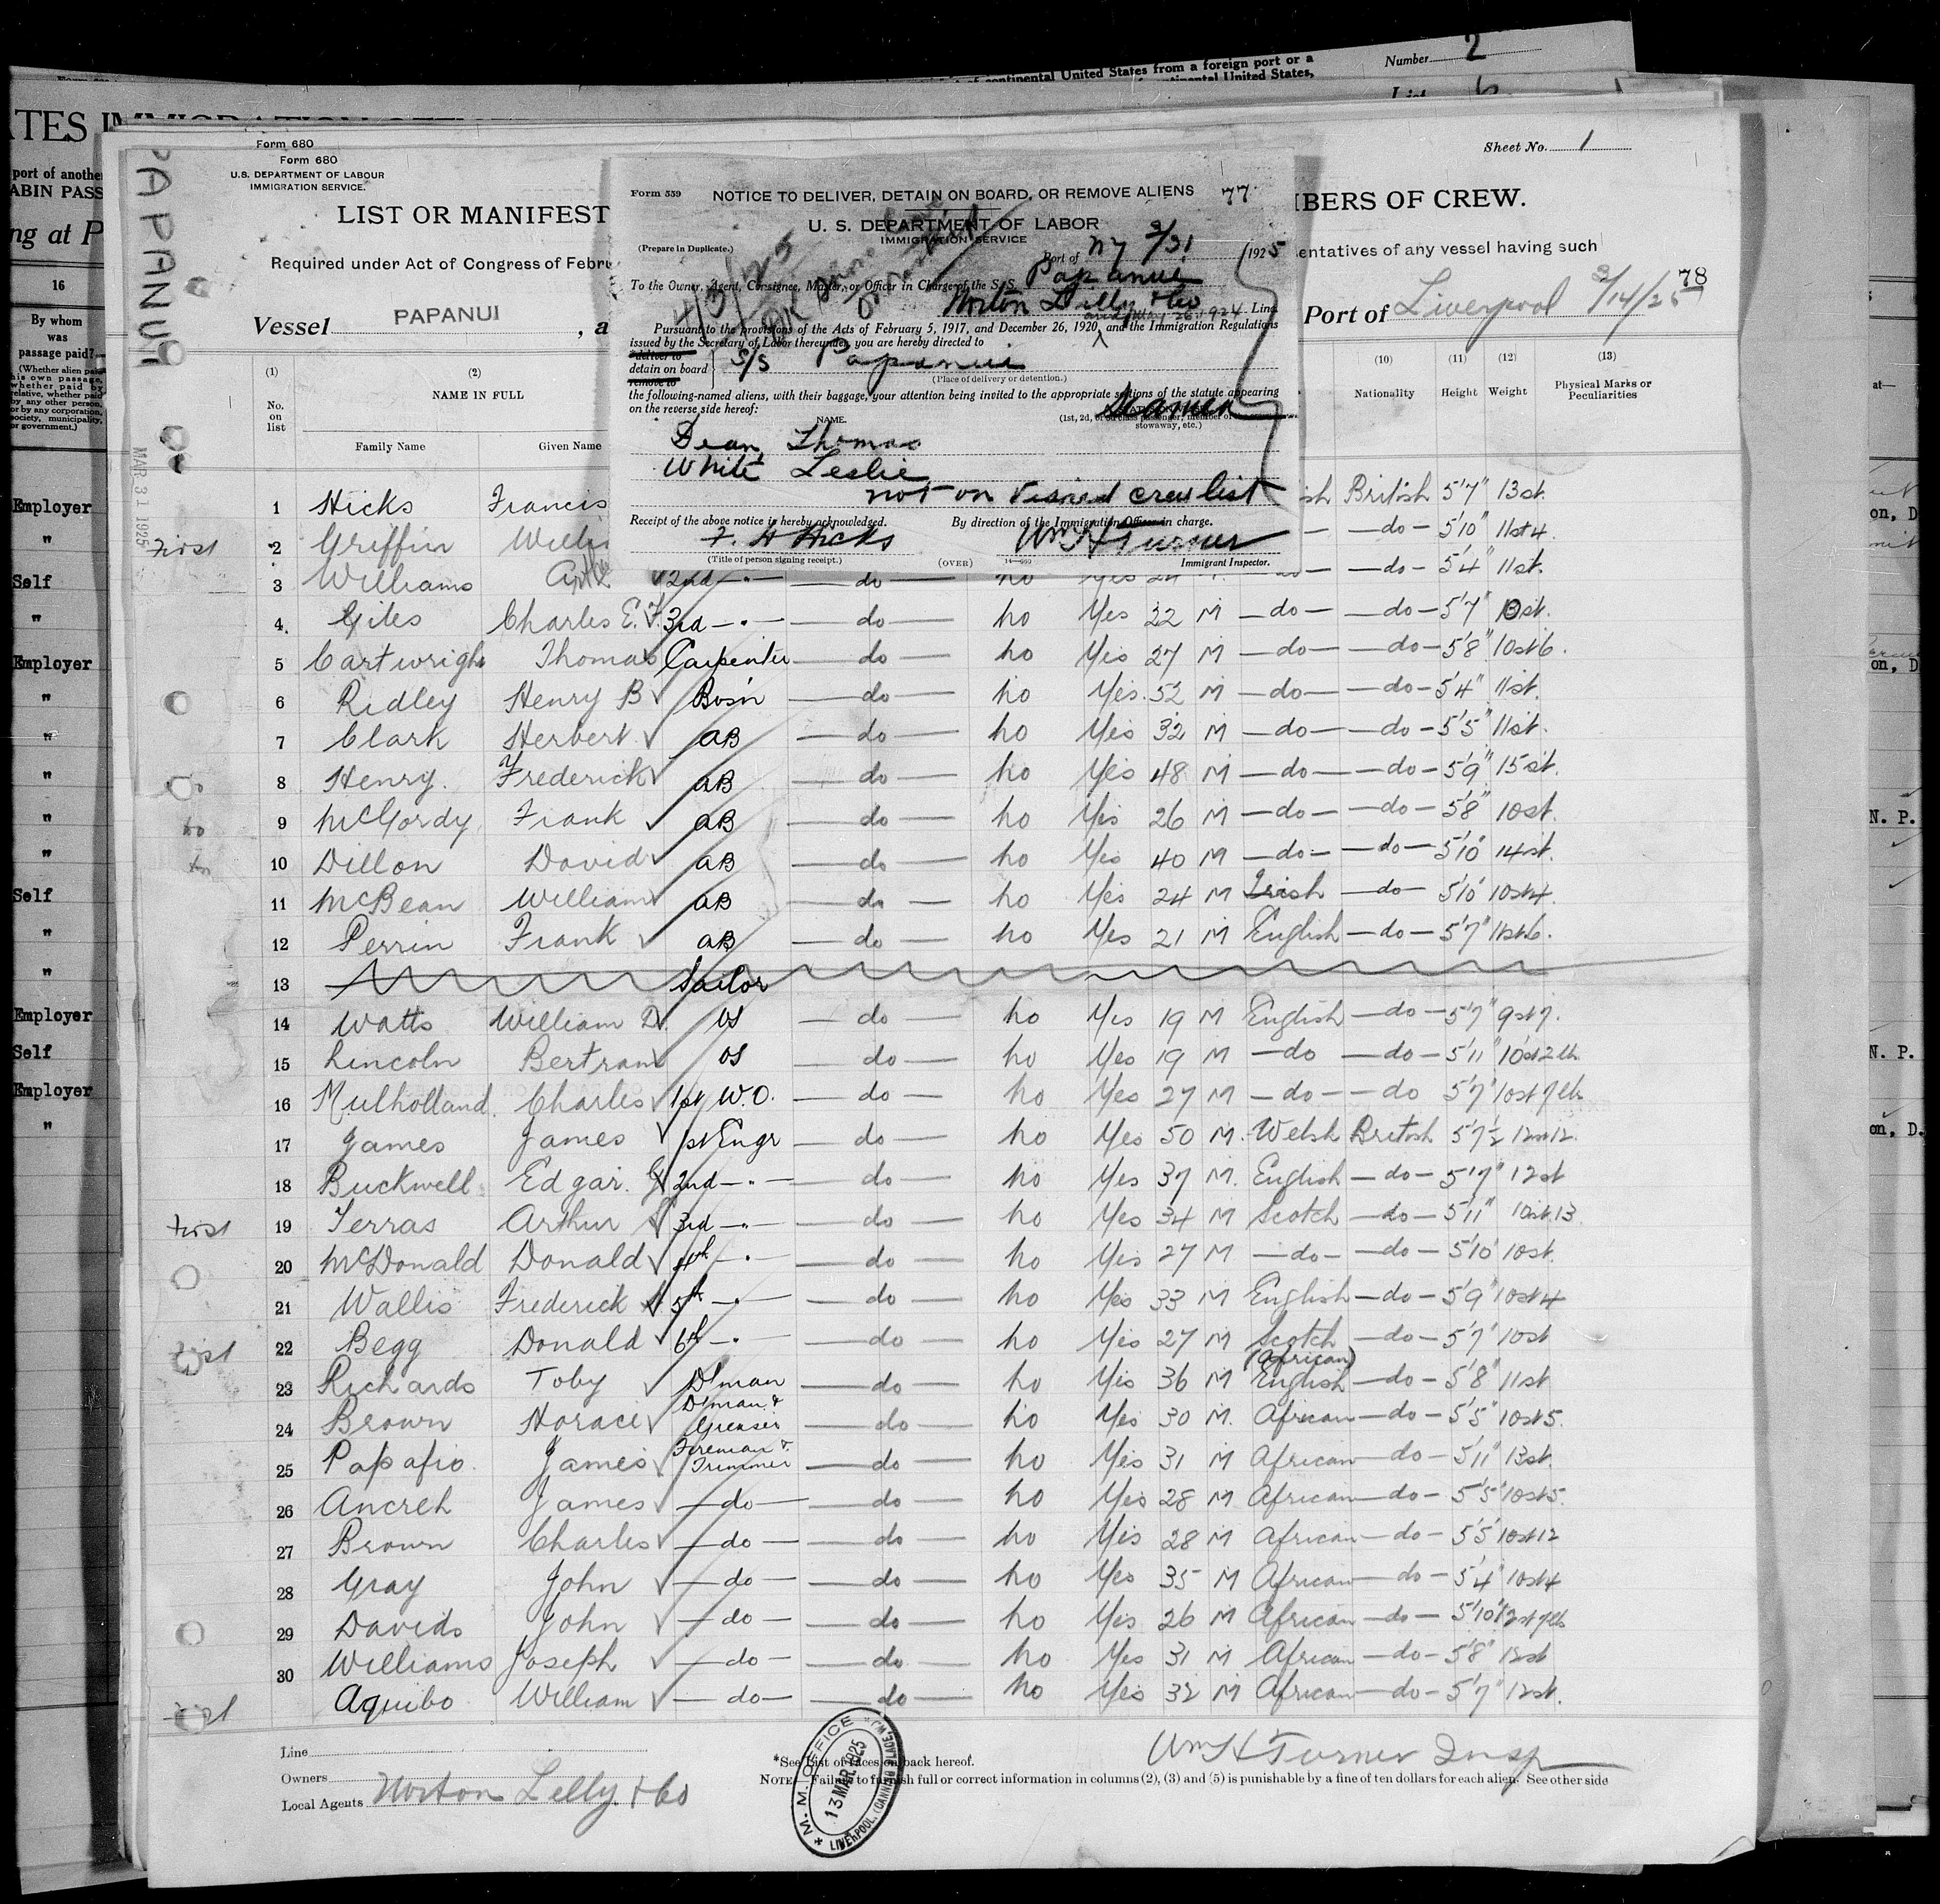 Number 2
continental United States from a foreign port or a
continental United States,
List 6
ATES
port of another
CABIN PASS
ng at P
16
By whom
was
passage paid?
(Whether alien paid
his own passage,
whether paid by
relative, whether paid
by any other person,
or by any corporation,
society, municipality,
or government.)
Employer
"
Self
"
Employer
"
"
"
"
"
Self
"
"
Employer
Self
Employer
"
PAPANUI
MAR 31 1925
Form 680
Form 680
U.S. DEPARTMENT OF LABOUR
IMMIGRATION SERVICE.
Sheet No. 1
LIST OR MANIFEST
MBERS OF CREW.
Required under Act of Congress of Febru
entatives of any vessel having such
78
Vessel PAPANUI , a
Port of Liverpool 3/14/25
Form 559 NOTICE TO DELIVER, DETAIN ON BOARD, OR REMOVE ALIENS 77
U. S. DEPARTMENT OF LABOR
IMMIGRATION SERVICE
(Prepare in Duplicate.)
4/3/25
Port of NY 3/31 1925
To the Owner, Agent, Consignee, Master, or Officer in Charge of the S. S. Papanui
Norton Lilly & Co Line
Pursuant to the provisions of the Acts of February 5, 1917, and December 26, 1920, and May 26, 1924 and the Immigration Regulations
issued by the Secretary of Labor thereunder, you are hereby directed to
deliver to
detain on board S/S Papanui
remove to
(Place of delivery or detention.)
the following-named aliens, with their baggage, your attention being invited to the appropriate sections of the statute appearing
on the reverse side hereof:
NAME.
(1st, 2d, or 3d class passenger, member of
stowaway, etc.)
Dean, Thomas
White Leslie
not on visaed crew list
Receipt of the above notice is hereby acknowledged. By direction of the Immigration Officer in charge.
F. H Hicks Wm H Turner
(Title of person signing receipt.) (OVER) Immigrant Inspector.
(1) (2) (10) (11) (12) (13)
No. on list NAME IN FULL Nationality Height Weight Physical Marks or Peculiarities
Family Name Given Name
1 Hicks Francis ish British 5'7" 13st.
First 2 Griffin Willi — —do— 5'10" 11st4.
3 Williams 2nd —"— —do— no Yes 24 —do— —do— 5'4" 11st.
4 Giles Charles E. F. 3rd —"— —do— no Yes 22 M —do— —do— 5'7" 10st.
5 Cartwright Thomas Carpenter —do— no Yes 27 M —do— —do— 5'8" 10st6.
6 Ridley Henry B Bosn —do— no Yes 52 M —do— —do— 5'4" 11st.
7 Clark Herbert AB —do— no Yes 32 M —do— —do— 5'5" 11st.
8 Henry. Frederick AB —do— no Yes 48 M —do— —do— 5'9" 15st.
9 McGordy Frank AB —do— no Yes 26 M —do— —do— 5'8" 10st.
10 Dillon David AB —do— no Yes 40 M —do— —do— 5'10" 14st.
11 McBean William AB —do— no Yes 24 M Irish —do— 5'10" 10st4.
12 Perrin Frank AB —do— no Yes 21 M English —do— 5'7"
13 Sailor
14 Watts William D. OS —do— no Yes 19 M English —do— 5'7" 9st7.
15 Lincoln Bertram OS —do— no Yes 19 M —do —do— 5'11" 10st2lb
16 Mulholland Charles 1st W.O. —do— no Yes 27 M —do— —do 5'7" 10st7lb
17 James James 1st Engr —do— no Yes 50 M. Welsh British 5'7½ 12st12.
18 Buckwell Edgar. G 2nd —"— —do— no Yes 37 M. English —do— 5'7" 12st
First 19 Terras Arthur 3rd —"— —do— no Yes 34 M Scotch —do— 5'11" 10st.13
20 McDonald Donald 4th —"— —do— no Yes 27 M —do— —do— 5'10 10st.
21 Wallis Frederick 5th —"— —do— no Yes 33 M English —do— 5'9" 10st4
First 22 Begg Donald 6th —"— —do— no Yes 27 M Scotch —do— 5'7" 10st
23 Richards Toby D'man —do— no Yes 36 M (African) English —do— 5'8" 11st
24 Brown Horace D'man & Greaser —do— no Yes 30 M. African —do— 5'5" 10st5.
25 Papafio James Fireman & Trimmer —do— no Yes 31 M African —do— 5'11" 13st.
26 Ancreh James —do— —do— no Yes 28 M African —do— 5'5" 10st5.
27 Brown Charles —do— —do— no Yes 28 M African —do— 5'5" 10st12
28 Gray John —do— —do— no Yes 35 M African —do— 5'4" 10st4
29 Davids John —do— —do— no Yes 26 M African —do— 5'10" 12st7lb
30 Williams Joseph —do— —do— no Yes 31 M African —do— 5'8" 12st
Aquibo William —do— —do— no Yes 32 M African —do— 5'7" 12st.
Line
Owners
Local Agents Norton Lilly & Co
*See List of races on back hereof.
NOTE Failure to furnish full or correct information in columns (2), (3) and (5) is punishable by a fine of ten dollars for each alien. See other side
Wm H Turner Insp
M. M. OFFICE
13 MAR 1925
LIVERPOOL, (CANNING PLACE, W.)
on, D
on, D
N. P.
N. P.
on, D.